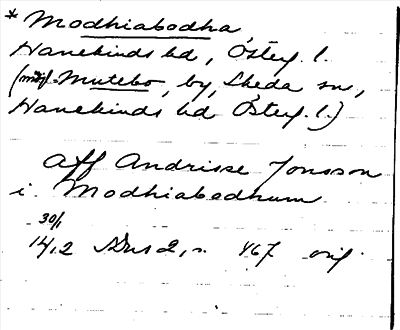 * Modhiabodha
Hanekinds hd, Östeg. l.
(möjl. Mutebo, by, Skeda sn,
Hanekinds hd Östeg. l.)
aff Andrisse Jonsson
i Modhiabodhum
30/1
1412 Dus 2, n. 467 orig